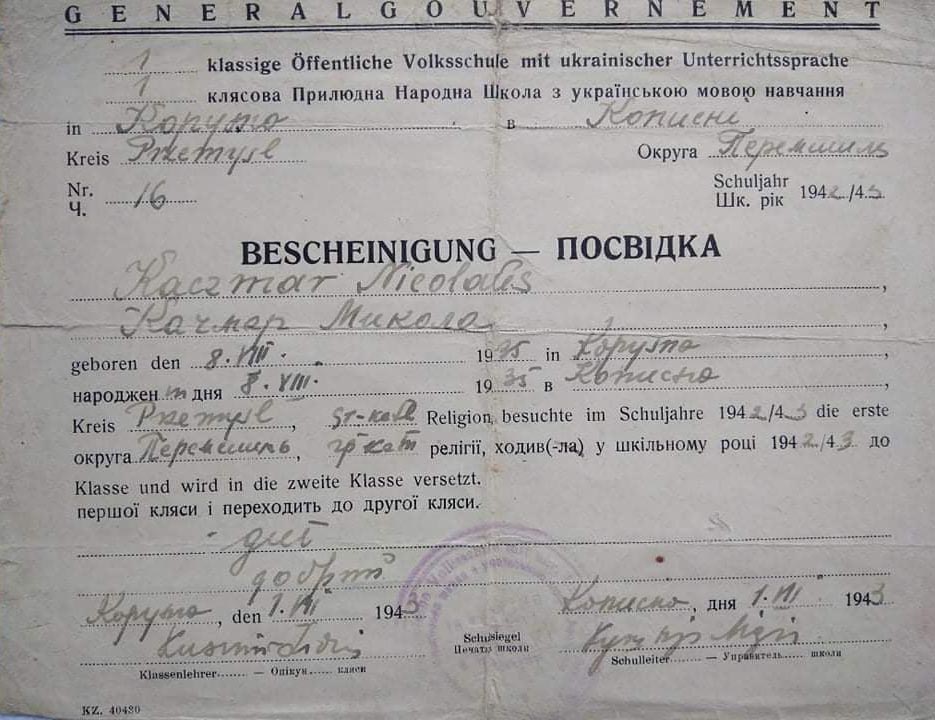 GENERALGOUVERNEMENT
1 klassige Öffentliche Volksschule mit ukrainischer Unterrichtssprache
1 клясова Прилюдна Народна Школа з українською мовою навчання
in Kopysno в Кописні
Kreis Przemysl Округа Перемишль
Nr. Ч. 16 Schuljahr Шк. рік 1942/43
BESCHEINIGUNG — ПОСВІДКА
Kaczmar Nicolaus,
Качмар Микола,
geboren den 8. VIII. 1935 in Kopysno,
народжен дня 8. VIII. 1935 в Кописно,
Kreis Przemysl, gr-kath Religion, besuchte im Schuljahre 1942/43 die erste
округа Перемишль, гр кат релігії, ходив(-ла) у шкільному році 1942/43 до
Klasse und wird in die zweite Klasse versetzt.
першої кляси і переходить до другої кляси.
gut
добрий
Kopysno, den 1. VII 1943 Кописно, дня 1. VII 1943
Schulsiegel
Печать школи
Klassenlehrer — Опікун кляси Schulleiter — Управитель школи
KZ. 40480